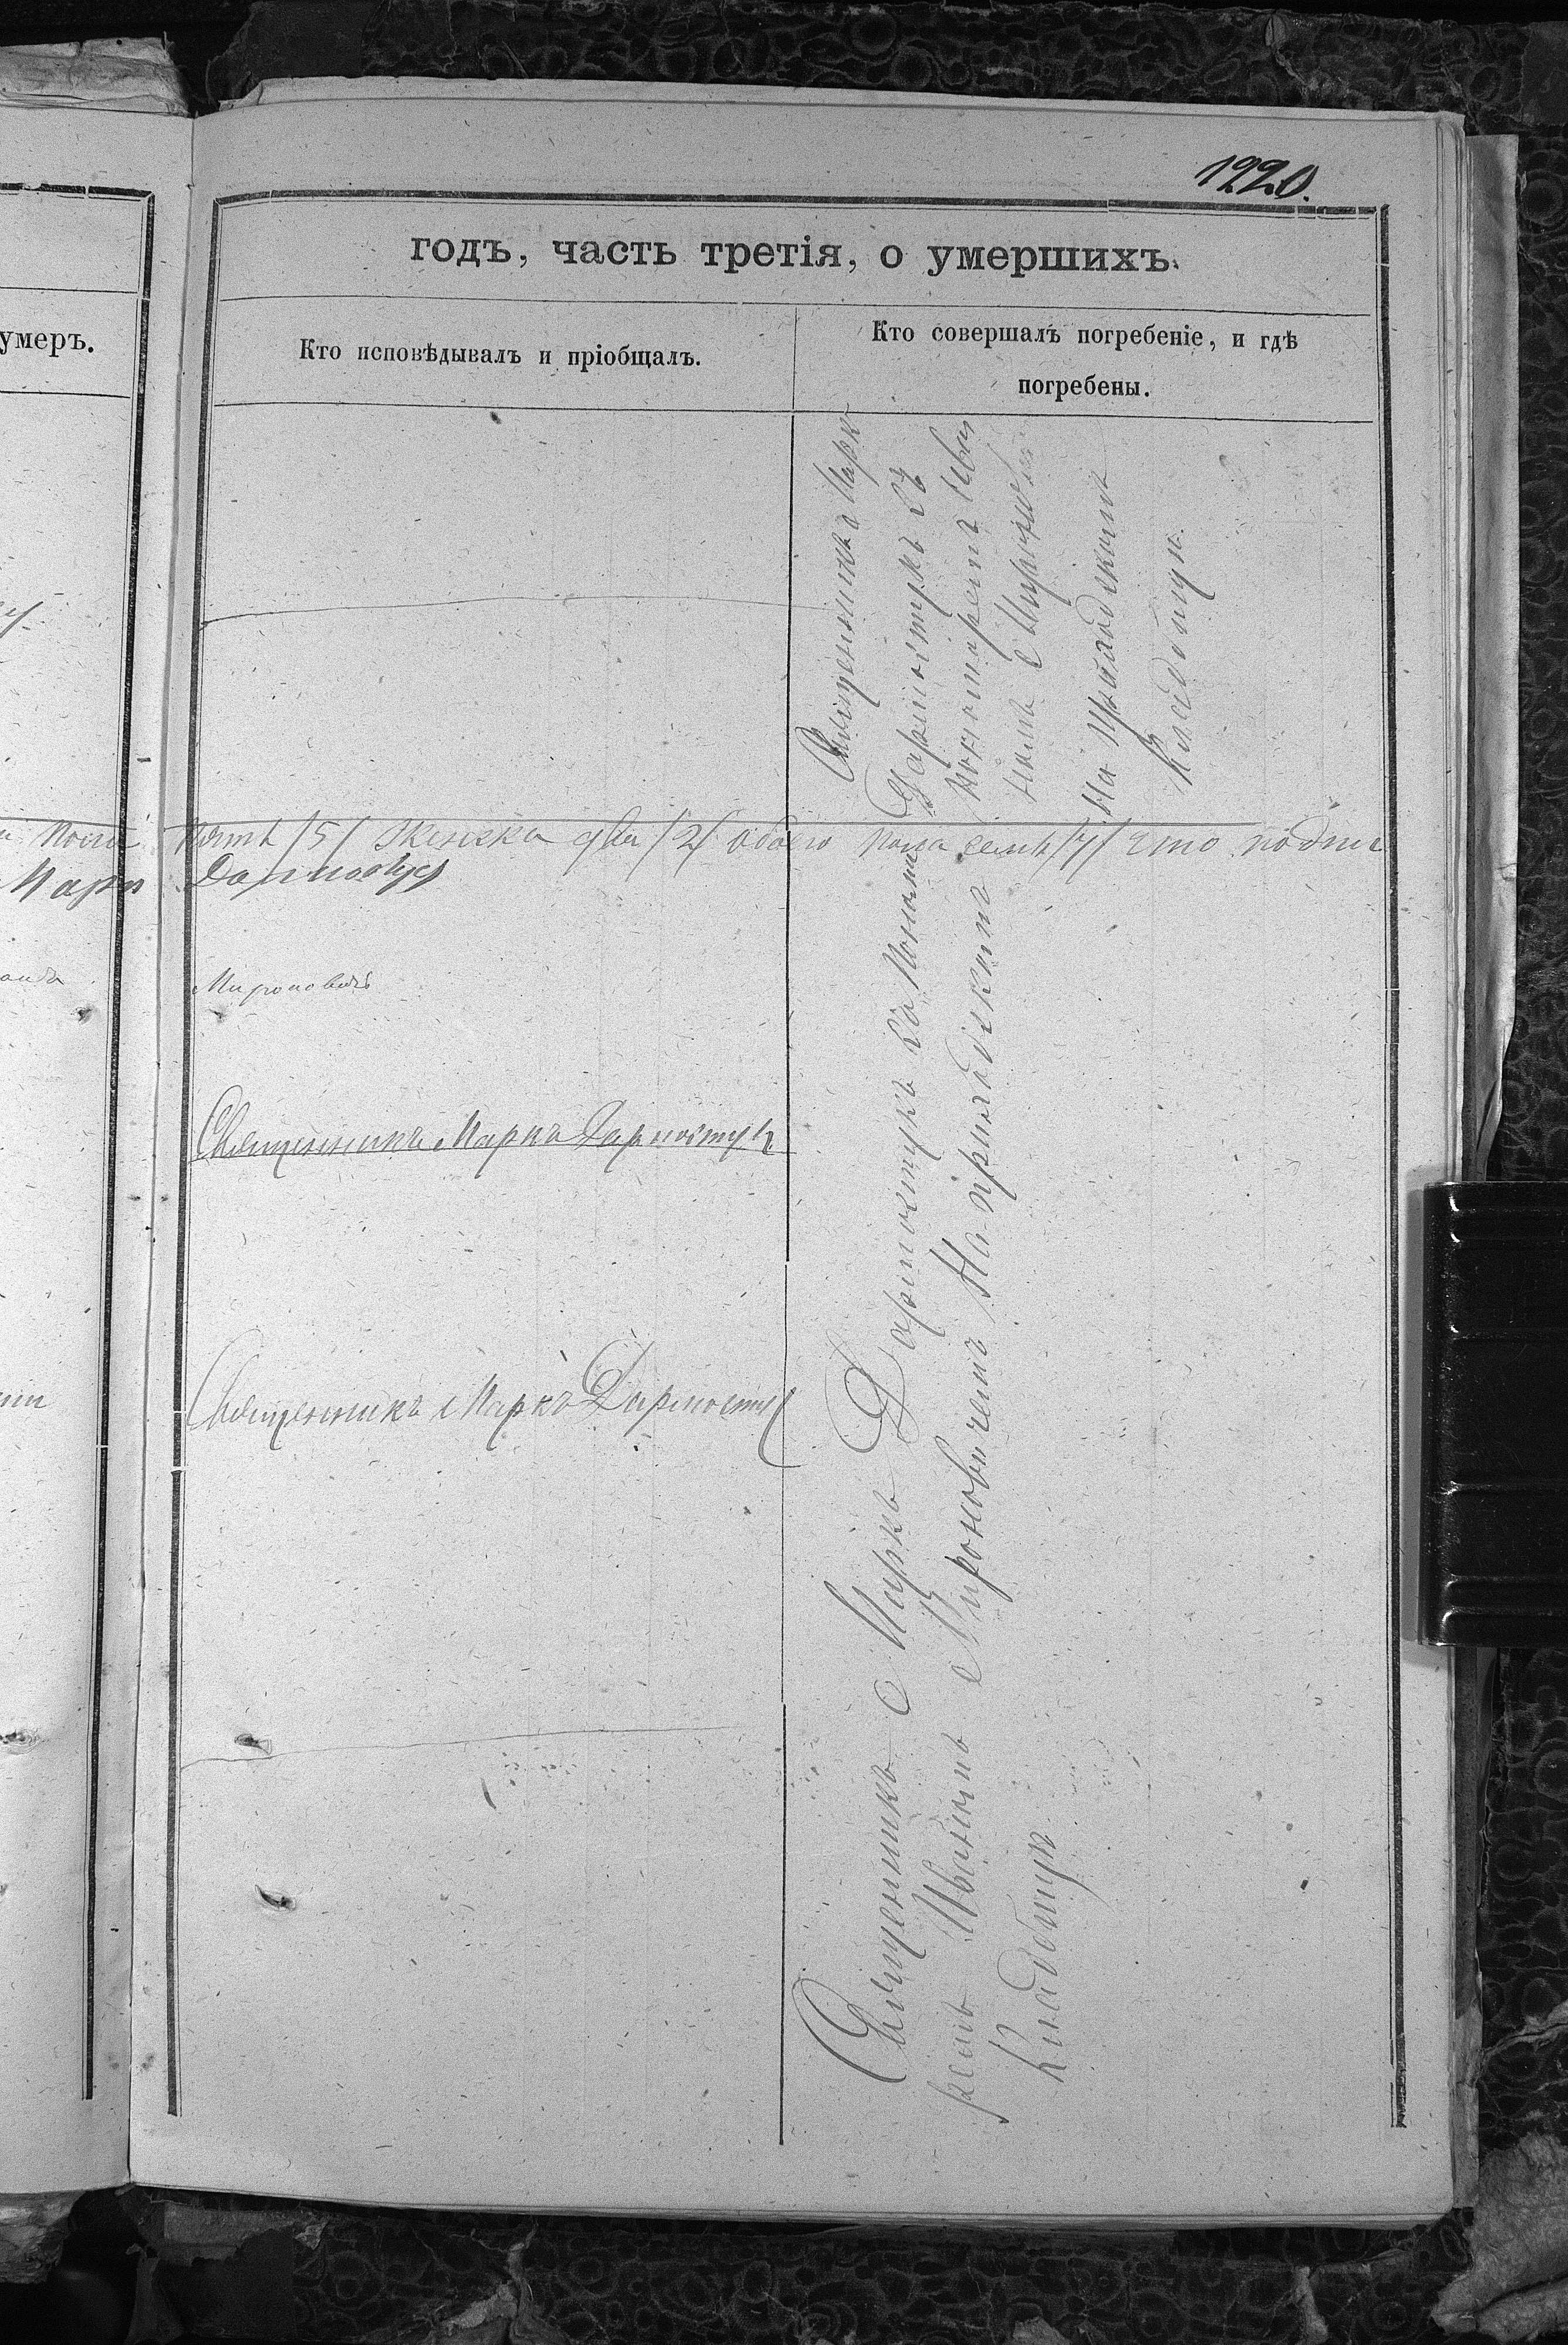 1220.
годъ, часть третія, о умершихъ.
умеръ.
Кто исповѣдывалъ и пріобщалъ.
Кто совершалъ погребеніе, и гдѣ
погребены.
Священникъ Марк
Дармостукъ съ
пономаремъ Ива
номъ Мироно
На приходскомъ
кладбищѣ.
пола пять /5/ женска два /2/ обоего пола семь /7/ что подпи
Марк Дармостук
Мироновичъ
Священникъ Маркъ Дармостукъ
Священникъ Маркъ Дармостук
Священникъ Маркъ Дармостукъ съ понама
ремъ Иваномъ Мироновичемъ На приходскомъ
кладбищѣ